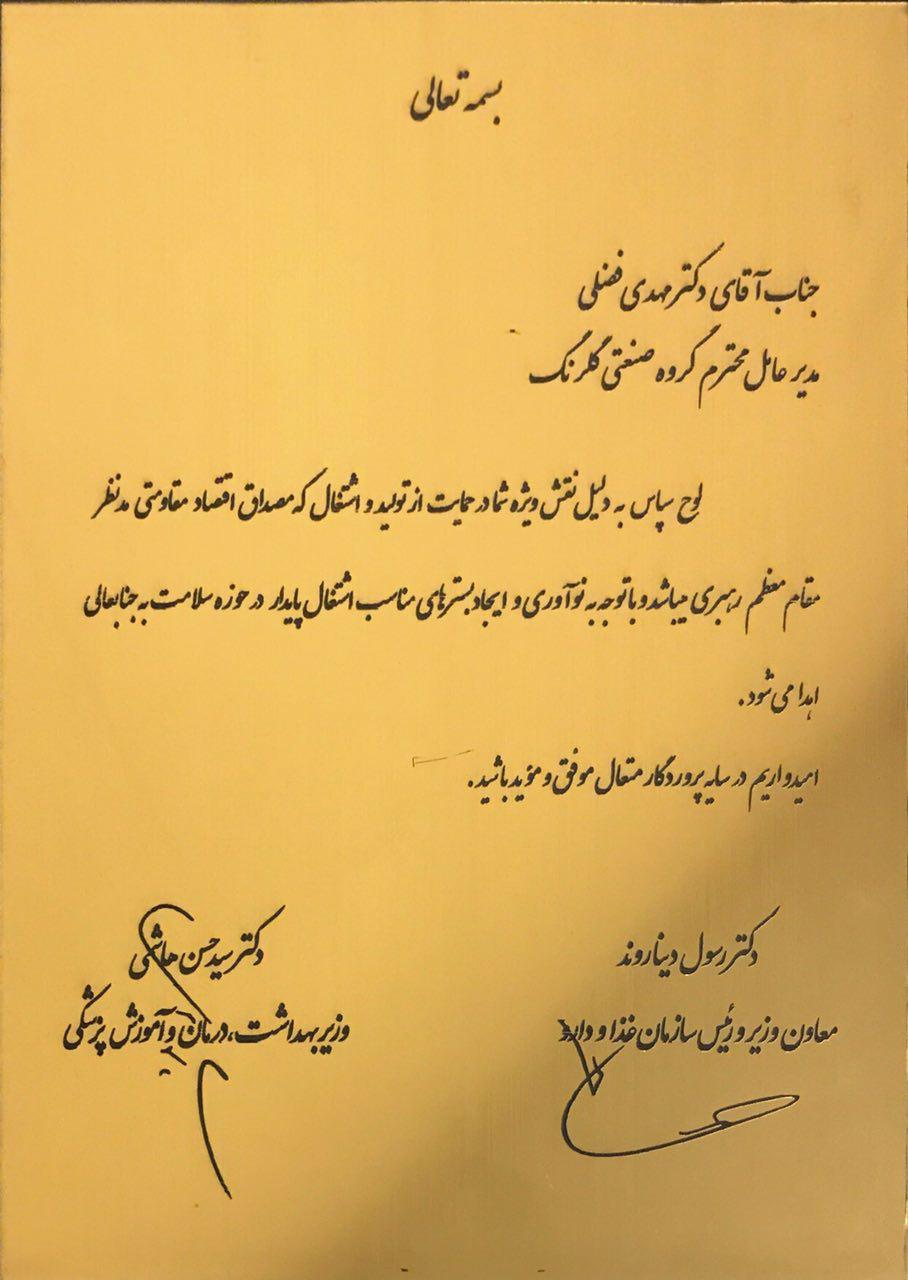 بسمه تعالی
جناب آقای دکتر مهدی فضلی
مدیر عامل محترم گروه صنعتی گلرنگ
لوح سپاس به دلیل نقش ویژه شما در حمایت از تولید و اشتغال که مصداق اقتصاد مقاومتی مدنظر
مقام معظم رهبری میباشد و با توجه به نوآوری و ایجاد بسترهای مناسب اشتغال پایدار در حوزه سلامت به جنابعالی
اهدا می شود.
امیدواریم در سایه پروردگار متعال موفق و مؤید باشید.
دکتر رسول دیناروند
معاون وزیر و رئیس سازمان غذا و دارو
دکتر سید حسن هاشمی
وزیر بهداشت، درمان و آموزش پزشکی